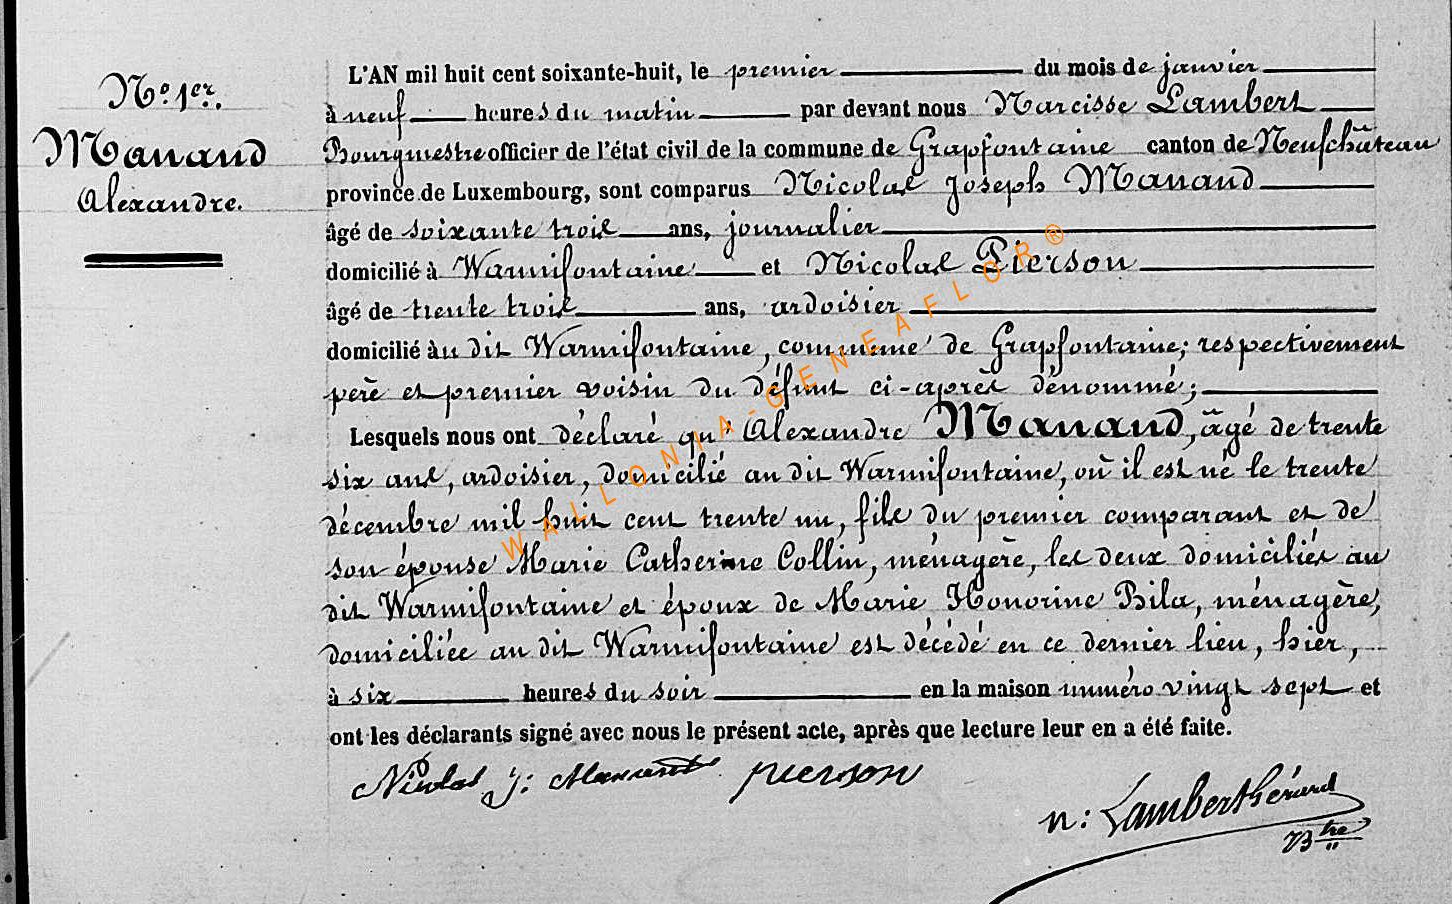 N° 1er.
Manand
Alexandre.
L'AN mil huit cent soixante-huit, le premier du mois de janvier
à neuf heures du matin par devant nous Narcisse Lambert
Bourgmestre officier de l'état civil de la commune de Grapfontaine canton de Neufchâteau
province de Luxembourg, sont comparus Nicolas Joseph Manand
âgé de soixante trois ans, journalier
domicilié à Warmifontaine et Nicolas Pierson
âgé de trente trois ans, ardoisier
domicilié àu dit Warmifontaine, commune de Grapfontaine; respectivement
père et premier voisin du défunt ci-après dénommé;
Lesquels nous ont déclaré qu'Alexandre Manand, âgé de trente
six ans, ardoisier, domicilié au dit Warmifontaine, où il est né le trente
décembre mil huit cent trente un, fils du premier comparant et de
son épouse Marie Catherine Collin, ménagère, les deux domiciliés au
dit Warmifontaine et époux de Marie Honorine Bila, ménagère,
domiciliée au dit Warmifontaine est décédé en ce dernier lieu, hier,
à six heures du soir en la maison numéro vingt sept et
ont les déclarants signé avec nous le présent acte, après que lecture leur en a été faite.
Nicolas j: Manand pierson
n: Lambert hérard
Btre
WALLONIA-GENEAFLOR®